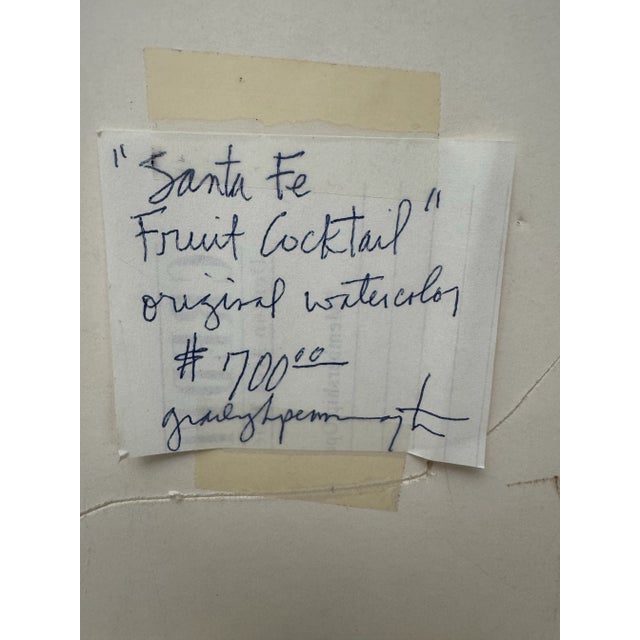 "Santa Fe
Fruit Cocktail"
original watercolor
# 700.00